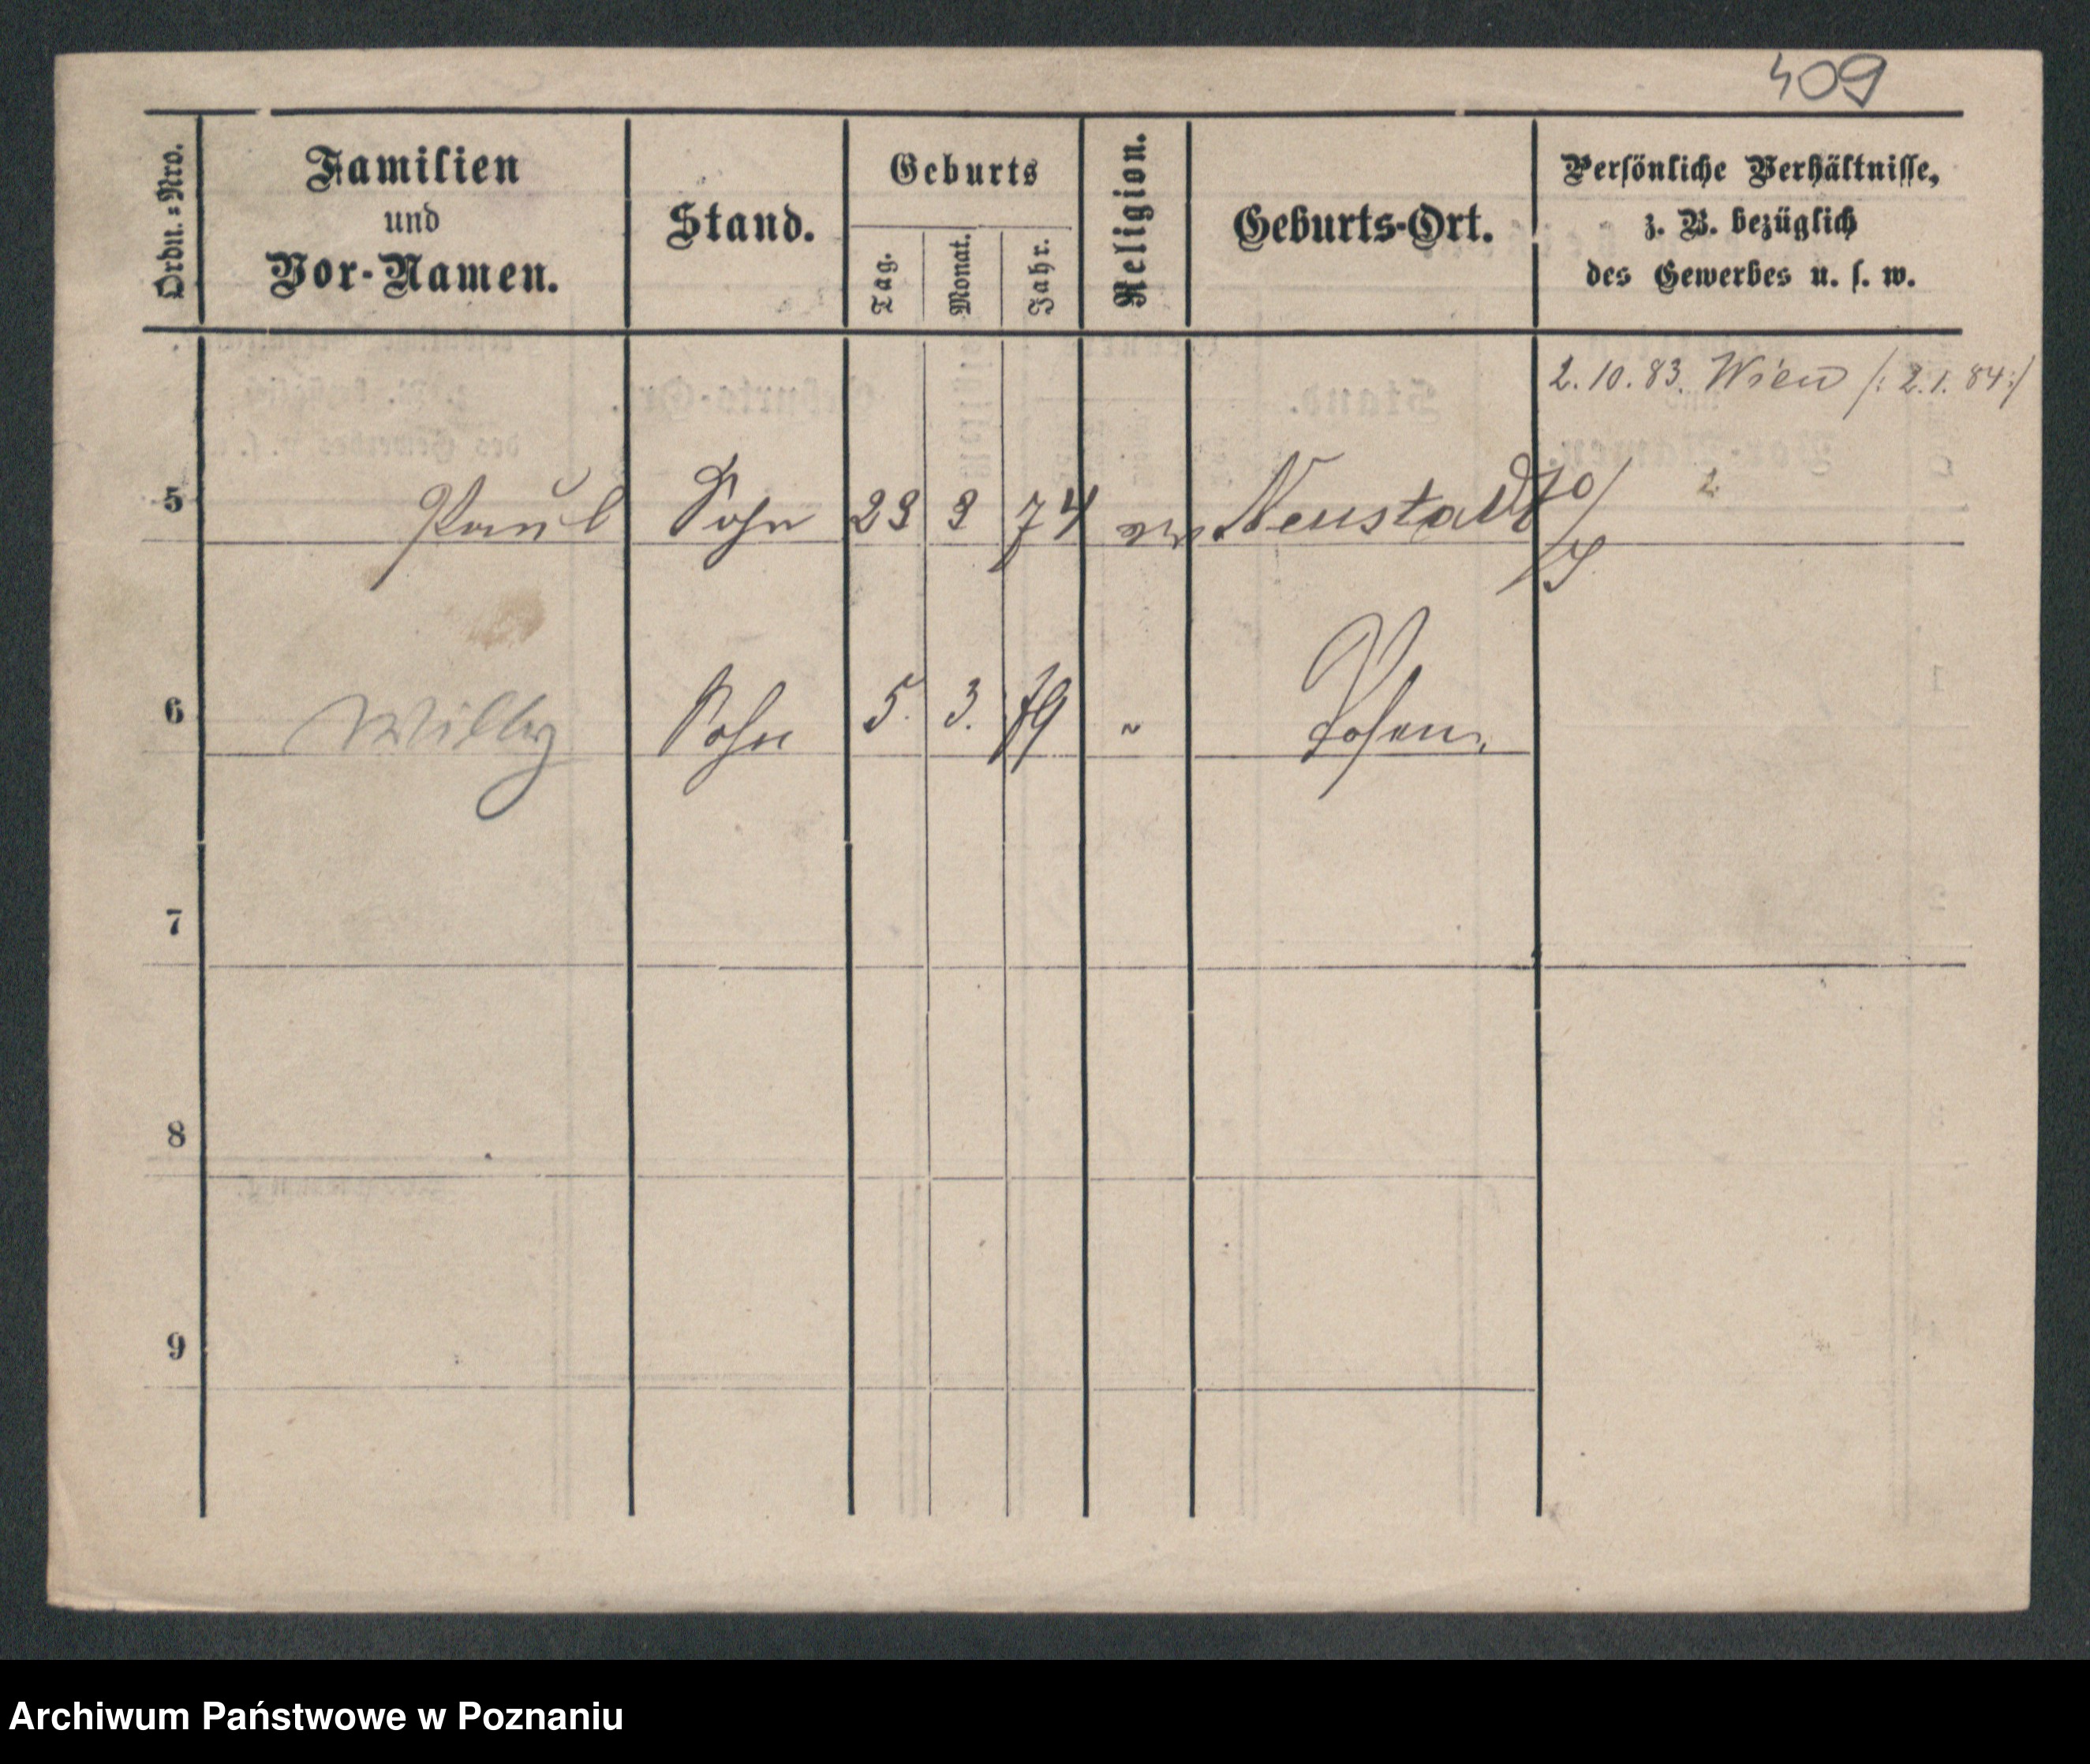 409
Ordn.=Nro.
Familien
und
Vor-Namen.
Stand.
Geburts
Tag.
Monat.
Jahr.
Religion.
Geburts-Ort.
Persönliche Verhältnisse,
z. B. bezüglich
des Gewerbes u. s. w.
2.10.83. Wien /: 2.1.84:/
5 Paul Sohn 23 3 74 Neustadt
6 Willy Sohn 5. 3. 79 " Posen.
7
8
9
Archiwum Państwowe w Poznaniu